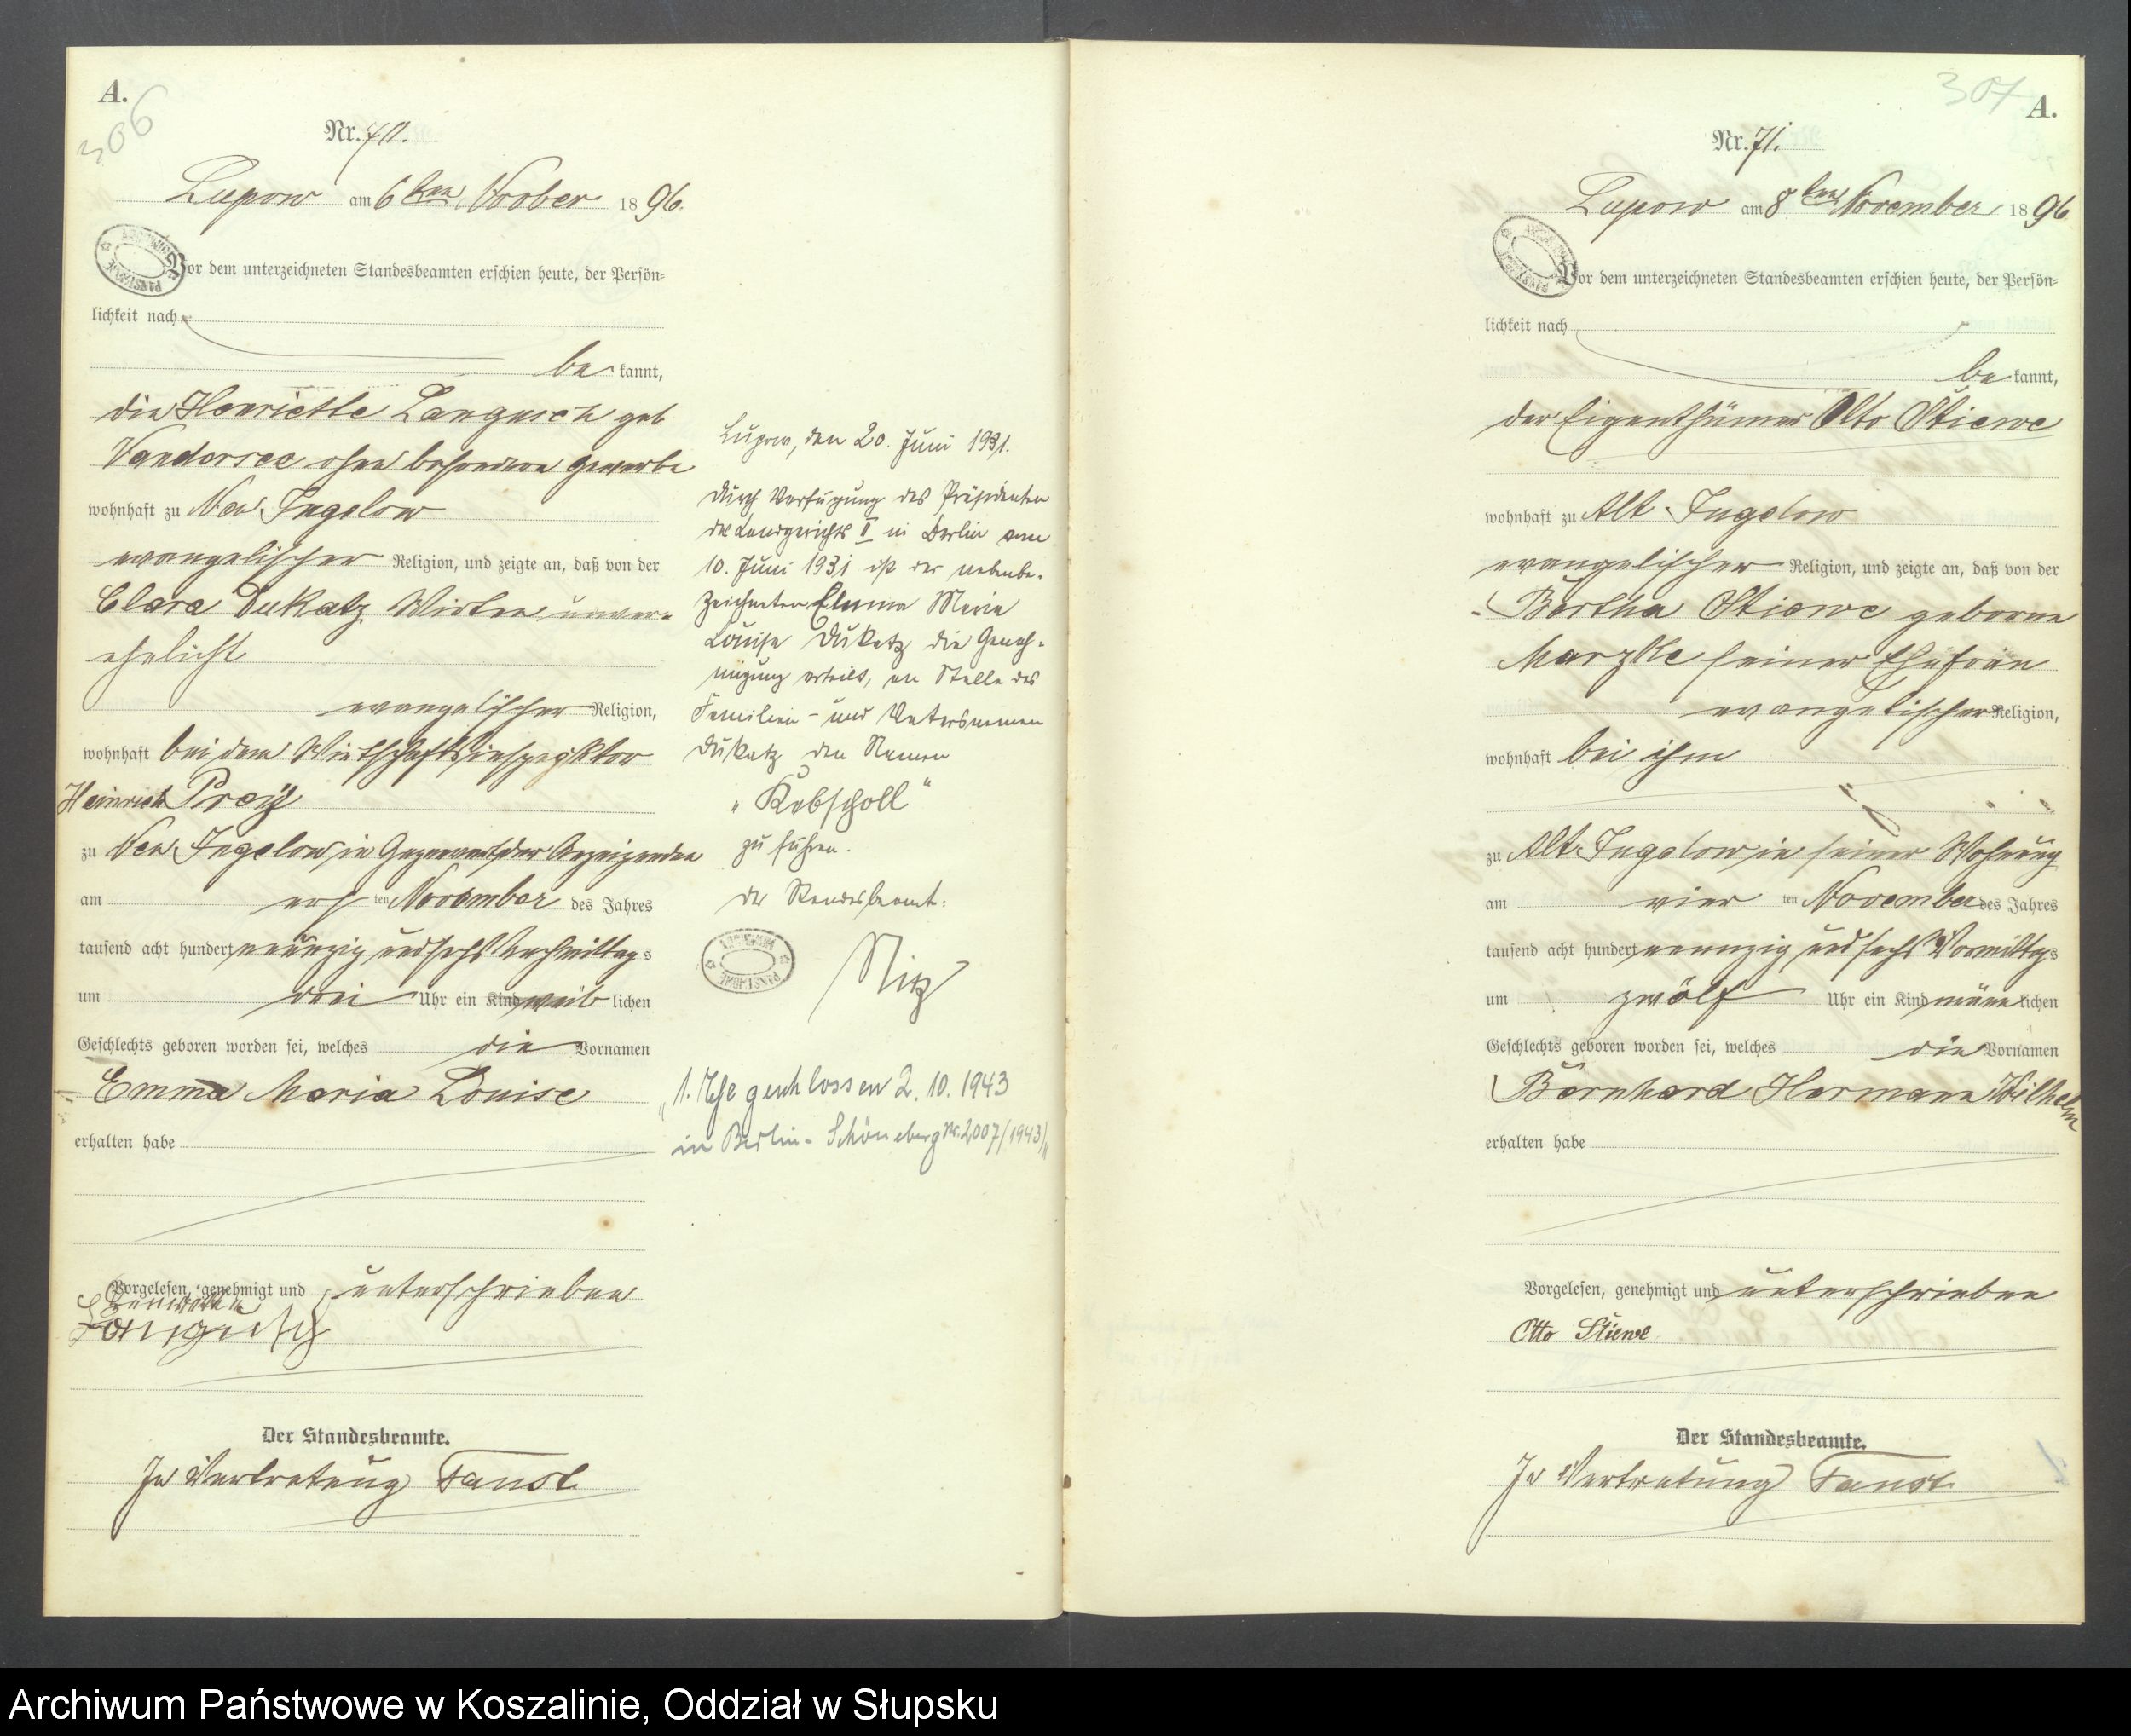 A.
306
Nr. 70.
Lupow am 6ten Novber 1896.
Vor dem unterzeichneten Standesbeamten erschien heute, der Persön=
lichkeit nach
bekannt,
die Henriette Langusch geb
Vandersee ohne besonderen Gewerbe
wohnhaft zu Neu Jugelow
evangelischer Religion, und zeigte an, daß von der
Clara Dukatz, unver=
ehelicht
evangelischer Religion,
wohnhaft bei dem Wirthschaftsinspecktor
Heinrich
zu Neu Jugelow in Gegenwart der Anzeigenden
am ersten November des Jahres
tausend acht hundert neunzig und sechs Nachmittags
um drei Uhr ein Kind weiblichen
Geschlechts geboren worden sei, welches die Vornamen
Emma Maria Louise
erhalten habe
Vorgelesen, genehmigt und unterschrieben
Langusch
Der Standesbeamte.
In Vertretung Faust
Lupow, den 20. Juni 1931.
Durch Verfügung des Präsidenten
des Landgerichts II in Berlin vom
10. Juni 1931 ist der nebenbe-
zeichneten Emma Maria
Louise Dukatz die Geneh-
migung erteilt, an Stelle des
Familien- und Vatersnamen
Dukatz den Namen
„Kobscholl"
zu führen.
Der Standesbeamte:
Nitz
„1. Ehe geschlossen 2. 10. 1943
in Berlin-Schöneberg Nr. 2007/1943)"
307
A.
Nr. 71.
Lupow am 8ten November 1896
Vor dem unterzeichneten Standesbeamten erschien heute, der Persön=
lichkeit nach
bekannt,
der Eigenthümer Otto Stiewe
wohnhaft zu Alt Jugelow
evangelischer Religion, und zeigte an, daß von der
Bertha Stiewe geborne
Marzke seiner Ehefrau
evangelischer Religion,
wohnhaft bei ihm
zu Alt Jugelow in seiner Wohnung
am vierten November des Jahres
tausend acht hundert neunzig und sechs Vormittags
um zwölf Uhr ein Kind männlichen
Geschlechts geboren worden sei, welches die Vornamen
Bernhard Hermann Wilhelm
erhalten habe
Vorgelesen, genehmigt und unterschrieben
Otto Stiewe
Der Standesbeamte.
In Vertretung Faust
Archiwum Państwowe w Koszalinie, Oddział w Słupsku